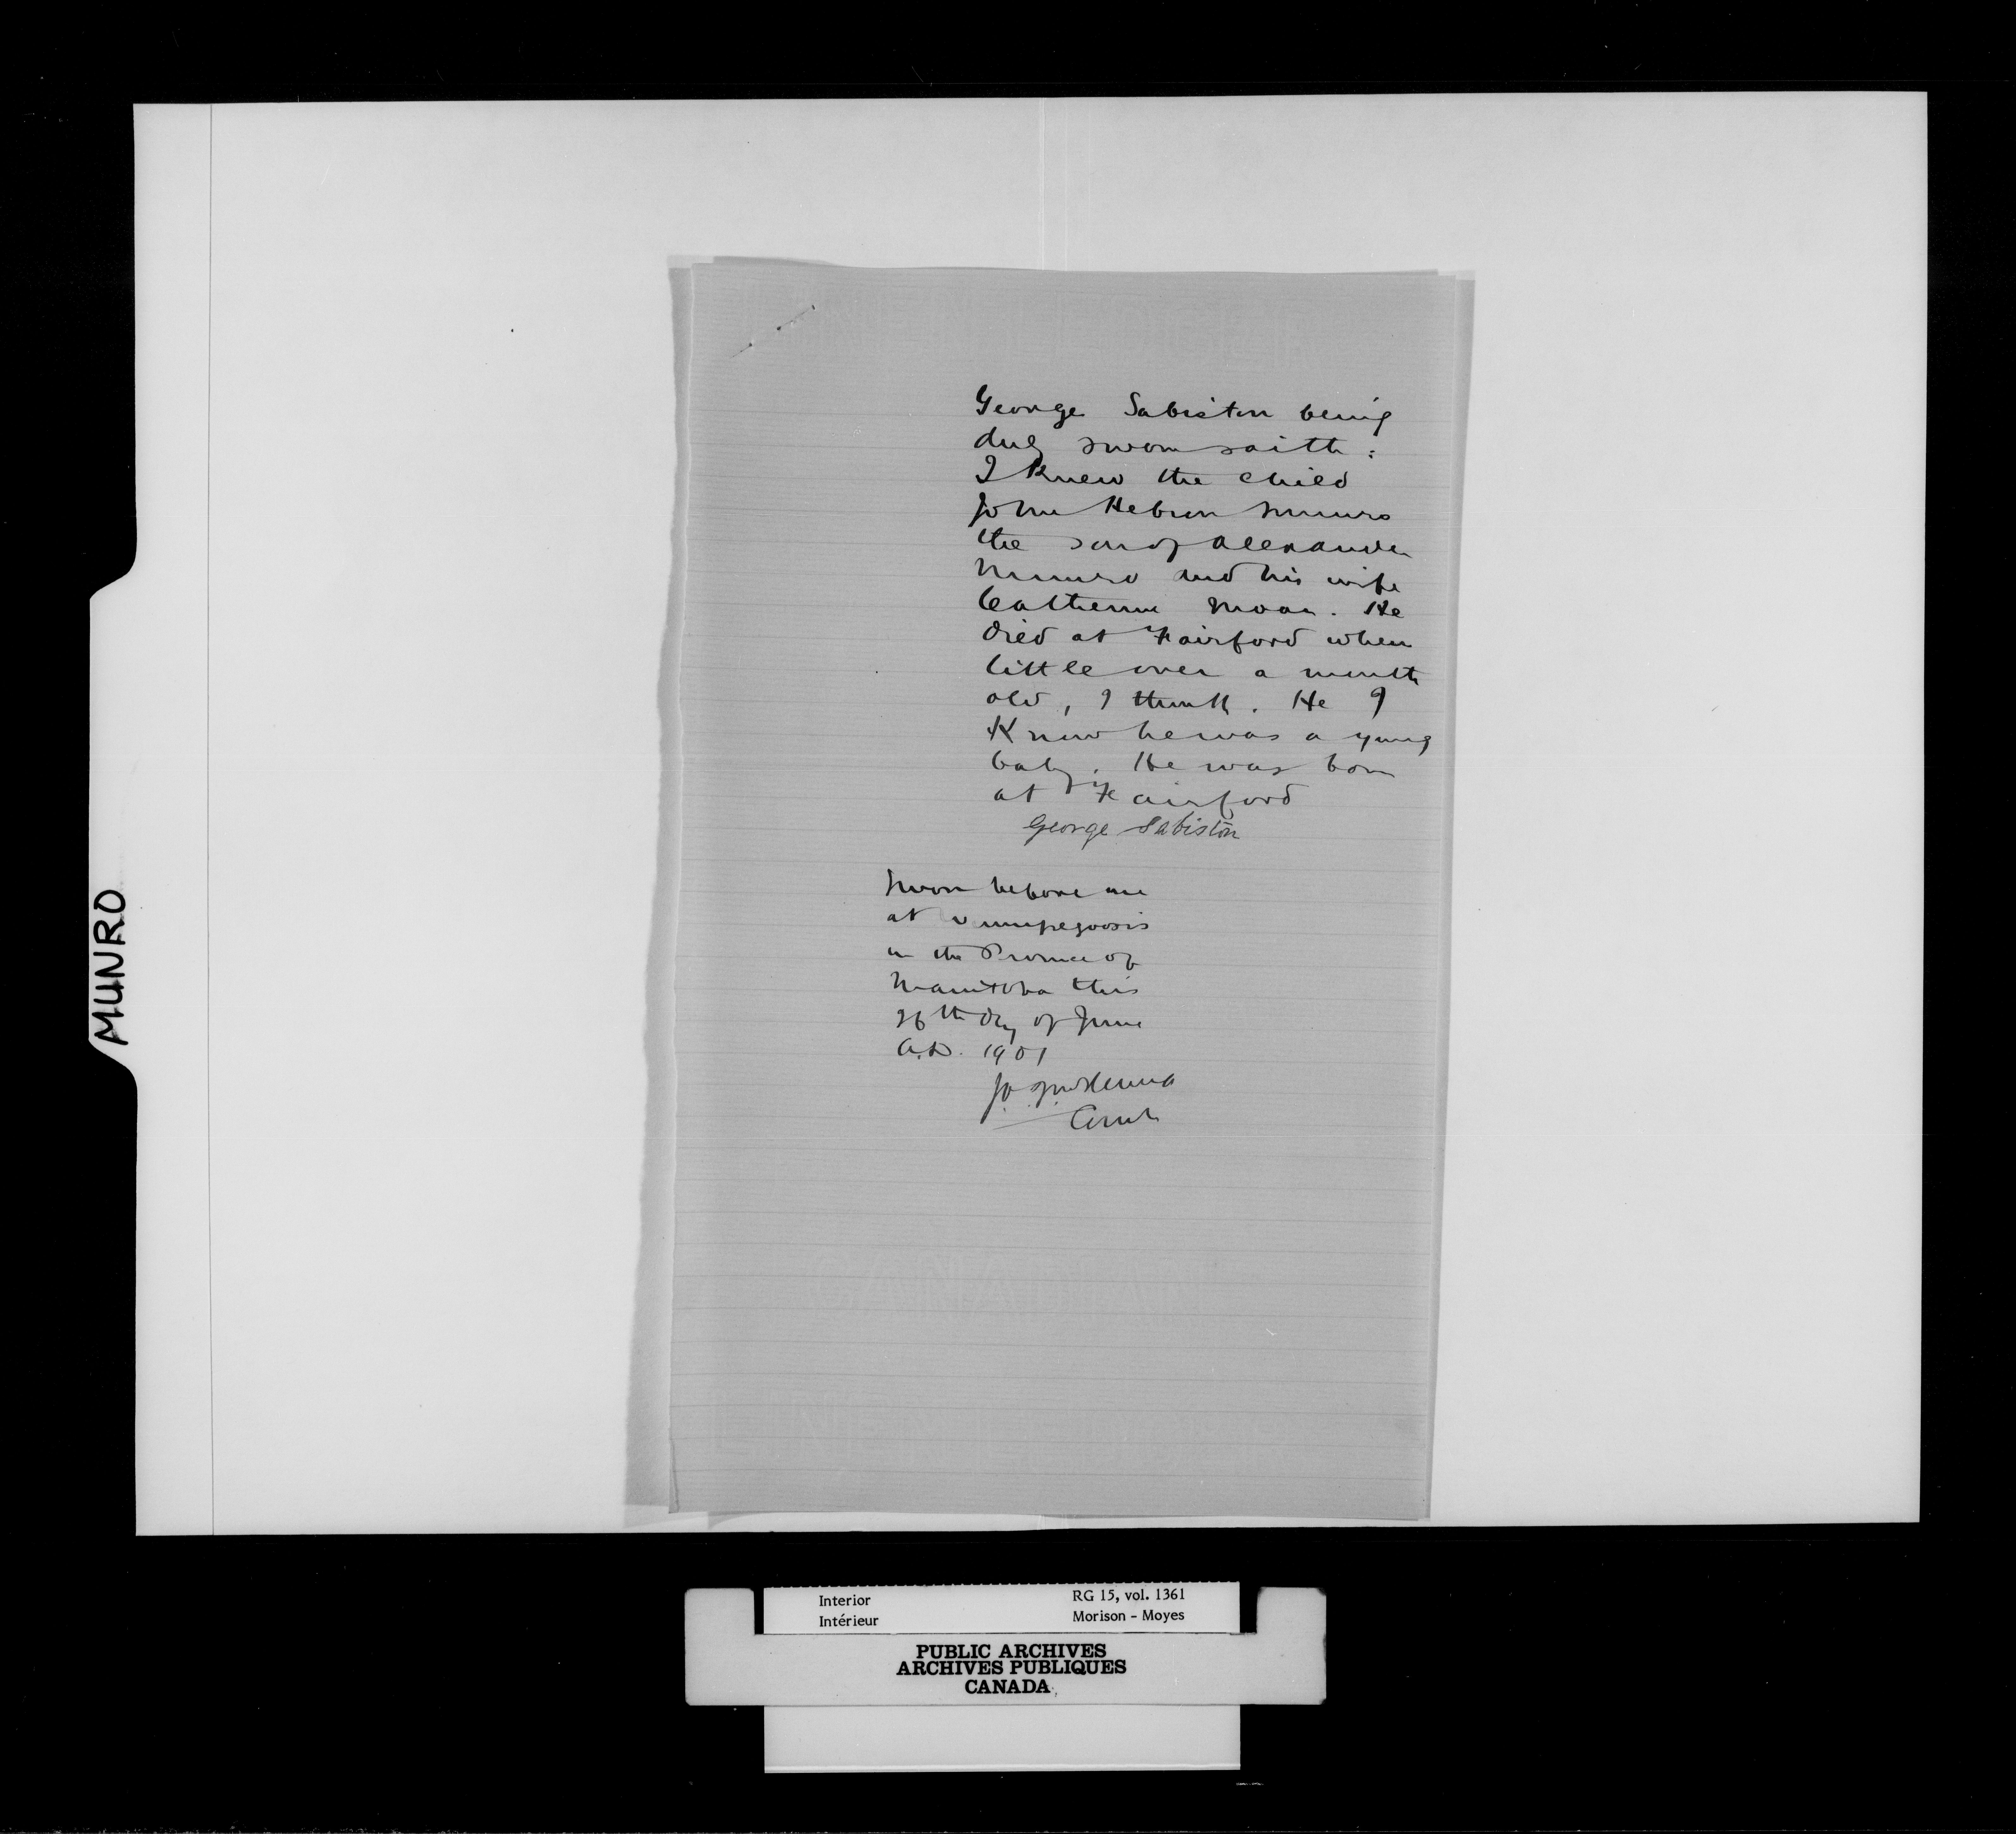 George Sabiston being
duly sworn saith:
I knew the child
John Hebron Munro
the son of Alexander
Munro and his wife
Catherine Moar. He
died at Fairford when
little over a month
old, I think. He I
Know he was a young
baby. He was born
at Fairford
George Sabiston
Sworn before me
at Winnipegosis
in the Province of
Manitoba this
26th day of June
A.D. 1901
MUNRO
Interior
Intérieur
RG 15, vol. 1361
Morison - Moyes
PUBLIC ARCHIVES
ARCHIVES PUBLIQUES
CANADA